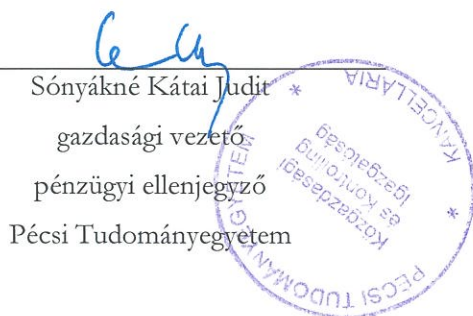 Sónyákné Kátai Judit
gazdasági vezető
pénzügyi ellenjegyző
Pécsi Tudományegyetem
PÉCSI TUDOMÁNYEGYETEM * KANCELLÁRIA *
Közgazdasági
és Kontrolling
Igazgatóság